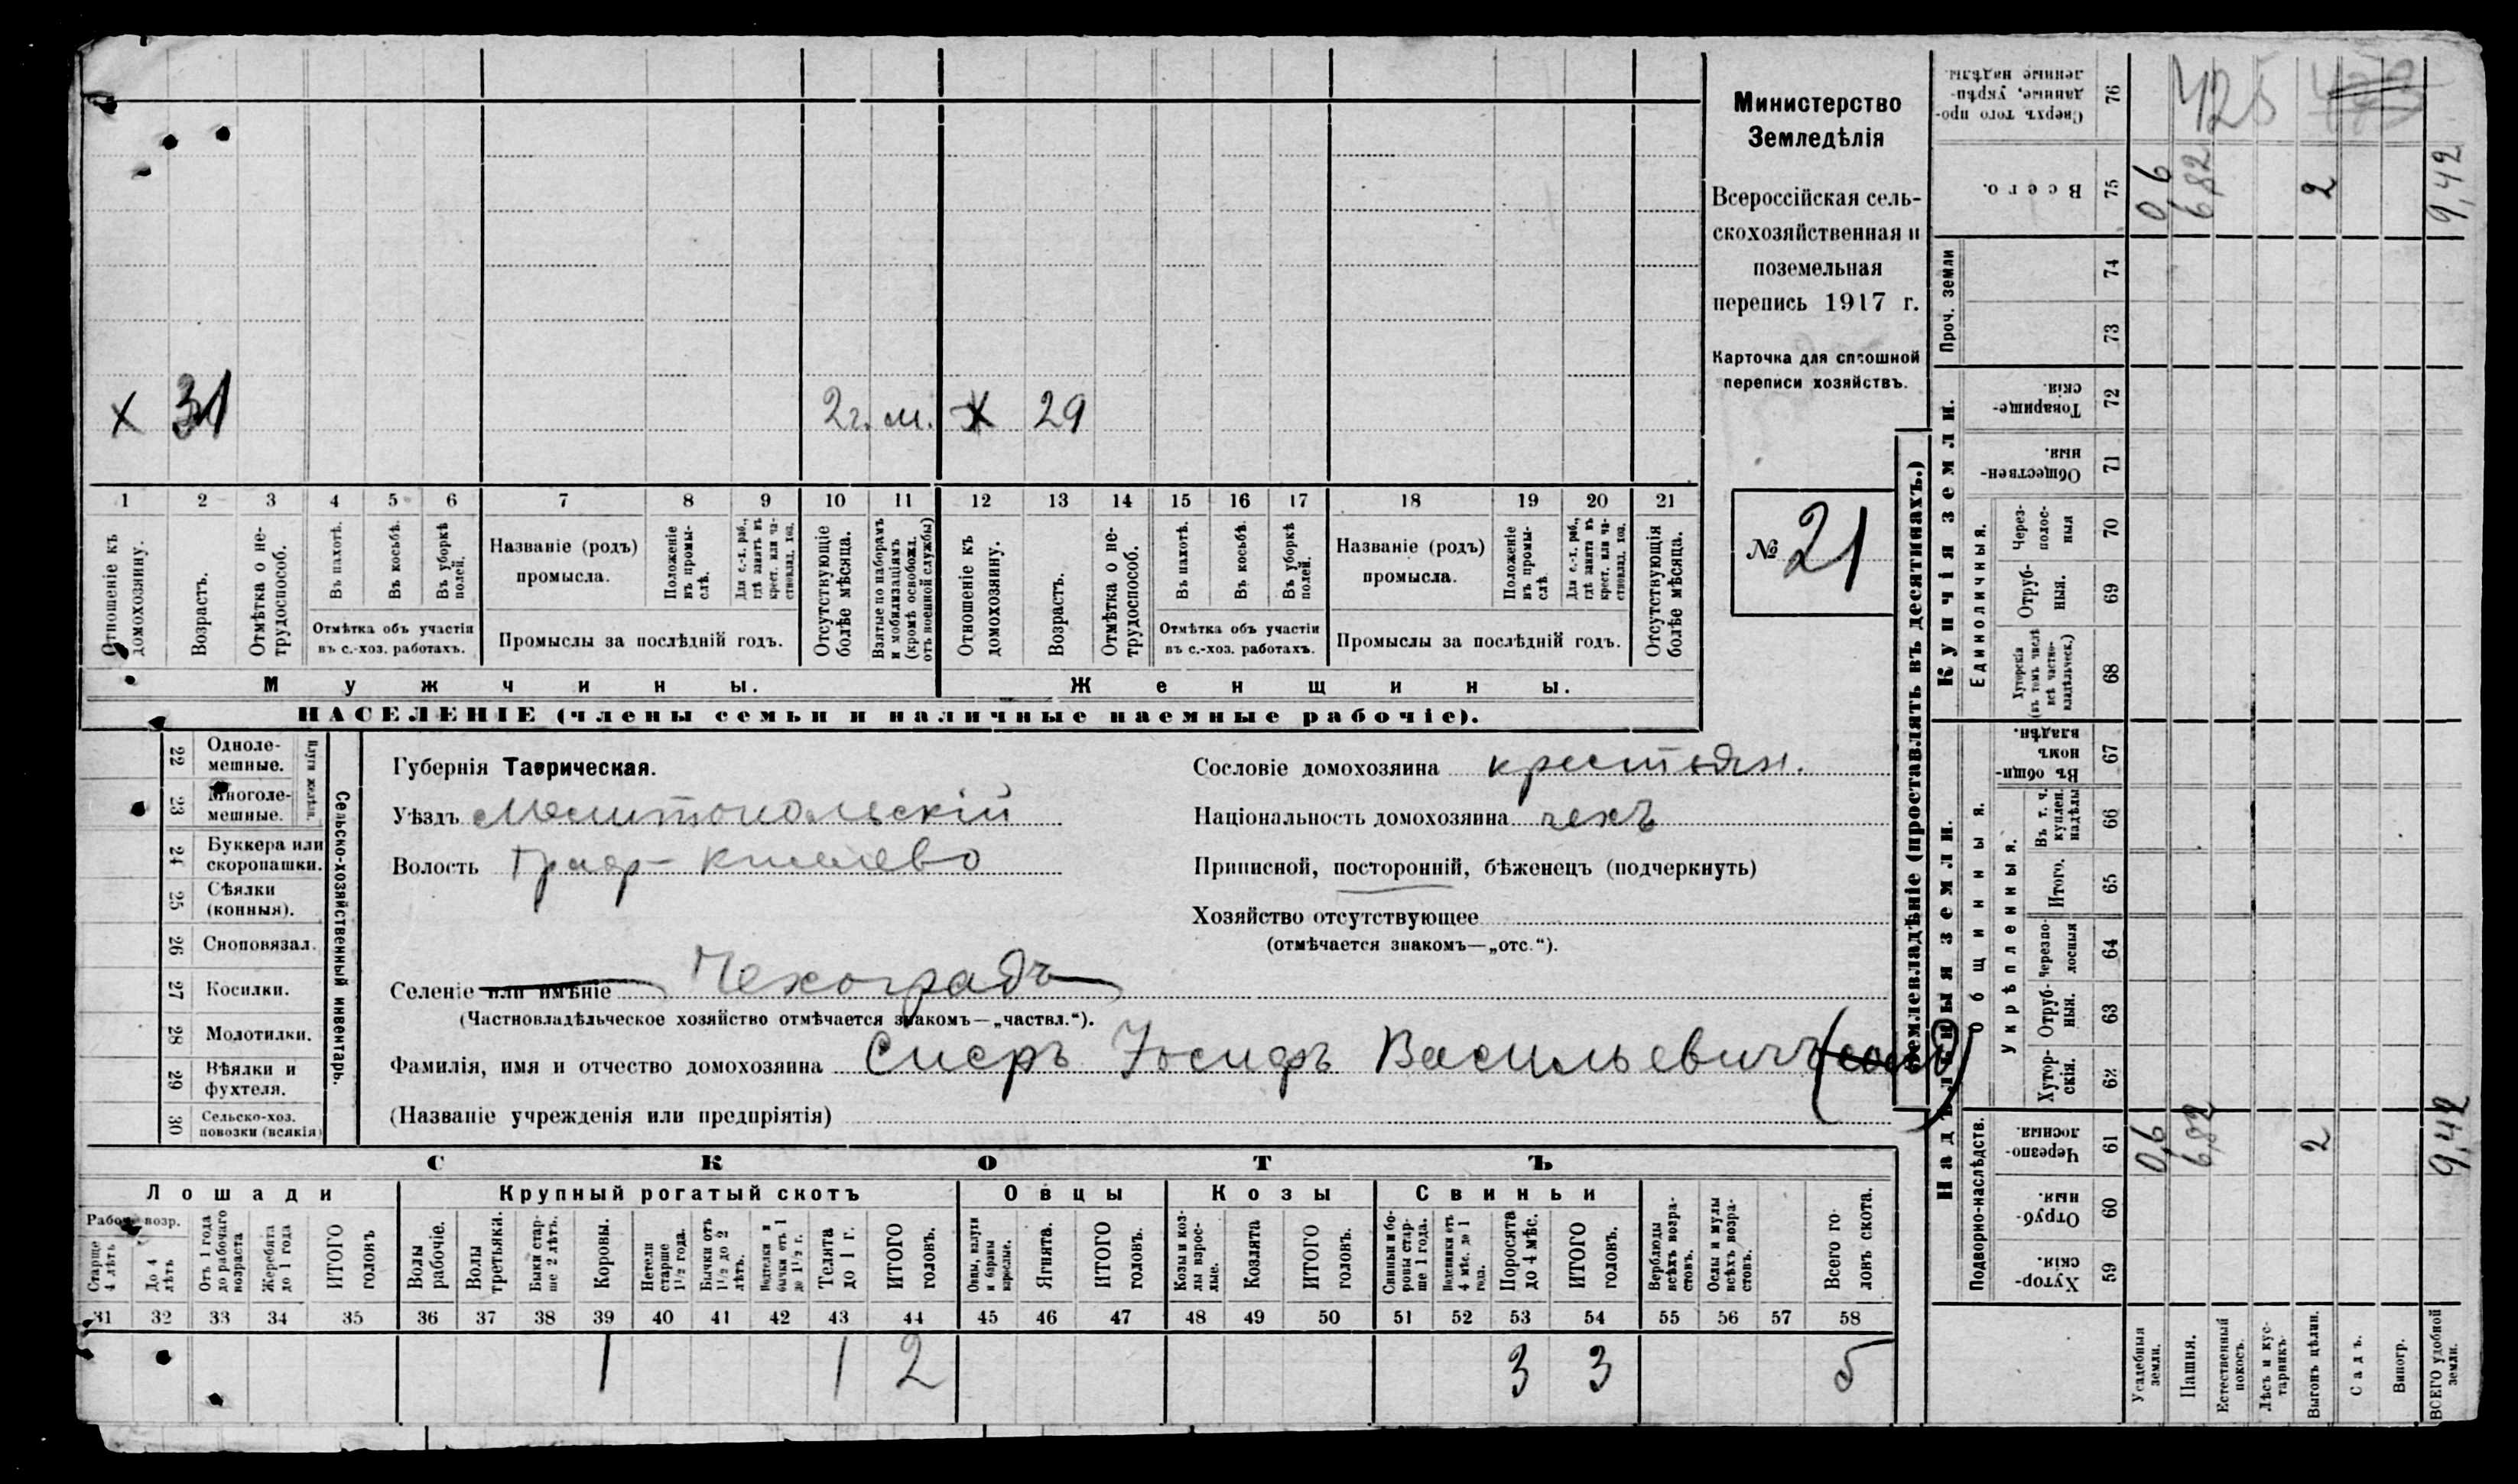 × 31 2г. м. × 29
1 2 3 4 5 6 7 8 9 10 11 12 13 14 15 16 17 18 19 20 21
Отношеніе къ домохозяину.
Возрастъ.
Отмѣтка о не-трудоспособ.
Въ пахотѣ.
Въ косьбѣ.
Въ уборкѣ полей.
Отмѣтка объ участіи
въ с.-хоз. работахъ.
Названіе (родъ)
промысла.
Положеніе въ промы-слѣ.
Для с.-х. раб., гдѣ занятъ въ крест. или ча-стновлад. хоз.
Промыслы за послѣдній годъ.
Отсутствующіе болѣе мѣсяца.
Взятые по наборамъ и мобилизаціямъ (кромѣ освобожд. отъ военной службы)
Отношеніе къ домохозяину.
Возрастъ.
Отмѣтка о не-трудоспособ.
Въ пахотѣ.
Въ косьбѣ.
Въ уборкѣ полей.
Отмѣтка объ участіи
въ с.-хоз. работахъ.
Названіе (родъ)
промысла.
Положеніе въ промы-слѣ.
Для с.-х. раб., гдѣ занята въ крест. или ча-стновлад. хоз.
Промыслы за послѣдній годъ.
Отсутствующія болѣе мѣсяца.
Мужчины. Женщины.
НАСЕЛЕНІЕ (члены семьи и наличные наемные рабочіе).
Министерство
Земледѣлія
Всероссійская сель-
скохозяйственная и
поземельная
перепись 1917 г.
Карточка для сплошной
переписи хозяйствъ.
№ 21
Сельско-хозяйственный инвентарь.
22 Одноле-мешные.
23 Многоле-мешные.
24 Буккера или скоропашки.
25 Сѣялки (конныя).
26 Сноповязал.
27 Косилки.
28 Молотилки.
29 Вѣялки и фухтеля.
30 Сельско-хоз. повозки (всякія)
Губернія Таврическая.
Уѣздъ Мелитопольскій
Волость
Селеніе или имѣніе Чехоградъ
(Частновладѣльческое хозяйство отмѣчается знакомъ—„частвл.“).
Фамилія, имя и отчество домохозяина Сисръ Іосифъ Васильевичъ
(Названіе учрежденія или предпріятія)
Сословіе домохозяина крестьян.
Національность домохозяина чехъ
Приписной, посторонній, бѣженецъ (подчеркнуть)
Хозяйство отсутствующее
(отмѣчается знакомъ—„отс.“).
СКОТЪ
Лошади Крупный рогатый скотъ Овцы Козы Свиньи
Рабоч. возр.
Старше 4 лѣтъ
До 4 лѣтъ
Отъ 1 года до рабочаго возраста
Жеребята до 1 года
ИТОГО головъ
Волы рабочіе.
Волы третьяки.
Быки стар-ше 2 лѣтъ.
Коровы.
Нетели старше 1½ года.
Бычки отъ 1½ до 2 лѣтъ.
Телята до 1 г.
ИТОГО головъ.
Ягнята.
ИТОГО головъ.
Козы и коз-лы взрос-лые.
Козлята
ИТОГО головъ.
Свиньи и бо-ровы стар-ше 1 года.
Поросята до 4 мѣс.
ИТОГО головъ.
Верблюды всѣхъ возра-стовъ.
Ослы и мулы всѣхъ возра-стовъ.
Всего го-ловъ скота.
31 32 33 34 35 36 37 38 39 40 41 42 43 44 45 46 47 48 49 50 51 52 53 54 55 56 57 58
1 1 2 3 3 5
Землевладѣніе (проставлять въ десятинахъ.)
Надѣльныя земли. Купчія земли. Проч. земли
Подворно-наслѣдств. Общинныя. Укрѣпленныя. Единоличныя.
Хутор-скія. 59
Отруб-ныя. 60
Черезпо-лосныя. 61
Хутор-скія. 62
Отруб-ныя. 63
Черезпо-лосныя 64
Итого. 65
Въ т. ч. куплен. надѣлы 66
Въ общин-номъ владѣн. 67
Хуторскія (въ томъ числѣ всѣ частно-владѣльческ.) 68
Отруб-ныя. 69
Через-полос-ныя 70
Обществен-ныя. 71
Товарище-скія. 72
73
74
Всего. 75
Сверхъ того про-данные, укрѣп-ленные надѣлы. 76
Усадебныя земли. 0,6 0,6
Пашня. 6,82 6,82
Естественный покосъ.
Лѣсъ и кус-тарникъ.
Выгонъ цѣлин. 2 2
Садъ.
Виногр.
ВСЕГО удобной земли. 9,42 9,42
425